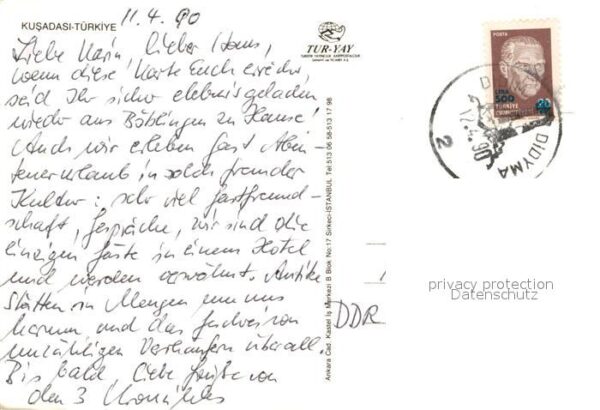 KUŞADASI-TÜRKİYE
11.4.90
TUR-YAY
Liebe Karin, lieber Hans,
wenn diese Karte Euch erreicht,
seid Ihr sicher erlebnisgeladen
wieder aus Böblingen zu Hause!
Auch wir erleben fast Aben-
teuerurlaub in solch fremder
Kultur: sehr viel Gastfreund-
schaft, Gespräche, wir sind die
einzigen Gäste in einem Hotel
und werden verwöhnt. Antike
Stätten in Mengen um uns
herum und das Gefeilsche von
unzähligen Verkäufern überall.
Bis bald, liebe Grüße von
den 3
Ankara Cad. Kastel İş Merkezi B Blok No:17 Sirkeci-İSTANBUL Tel:513 06 58-513 17 98
DDR
POSTA
LİRA
500
20
TÜRKİYE
DIDYMA
12.4.90
2
privacy protection
Datenschutz